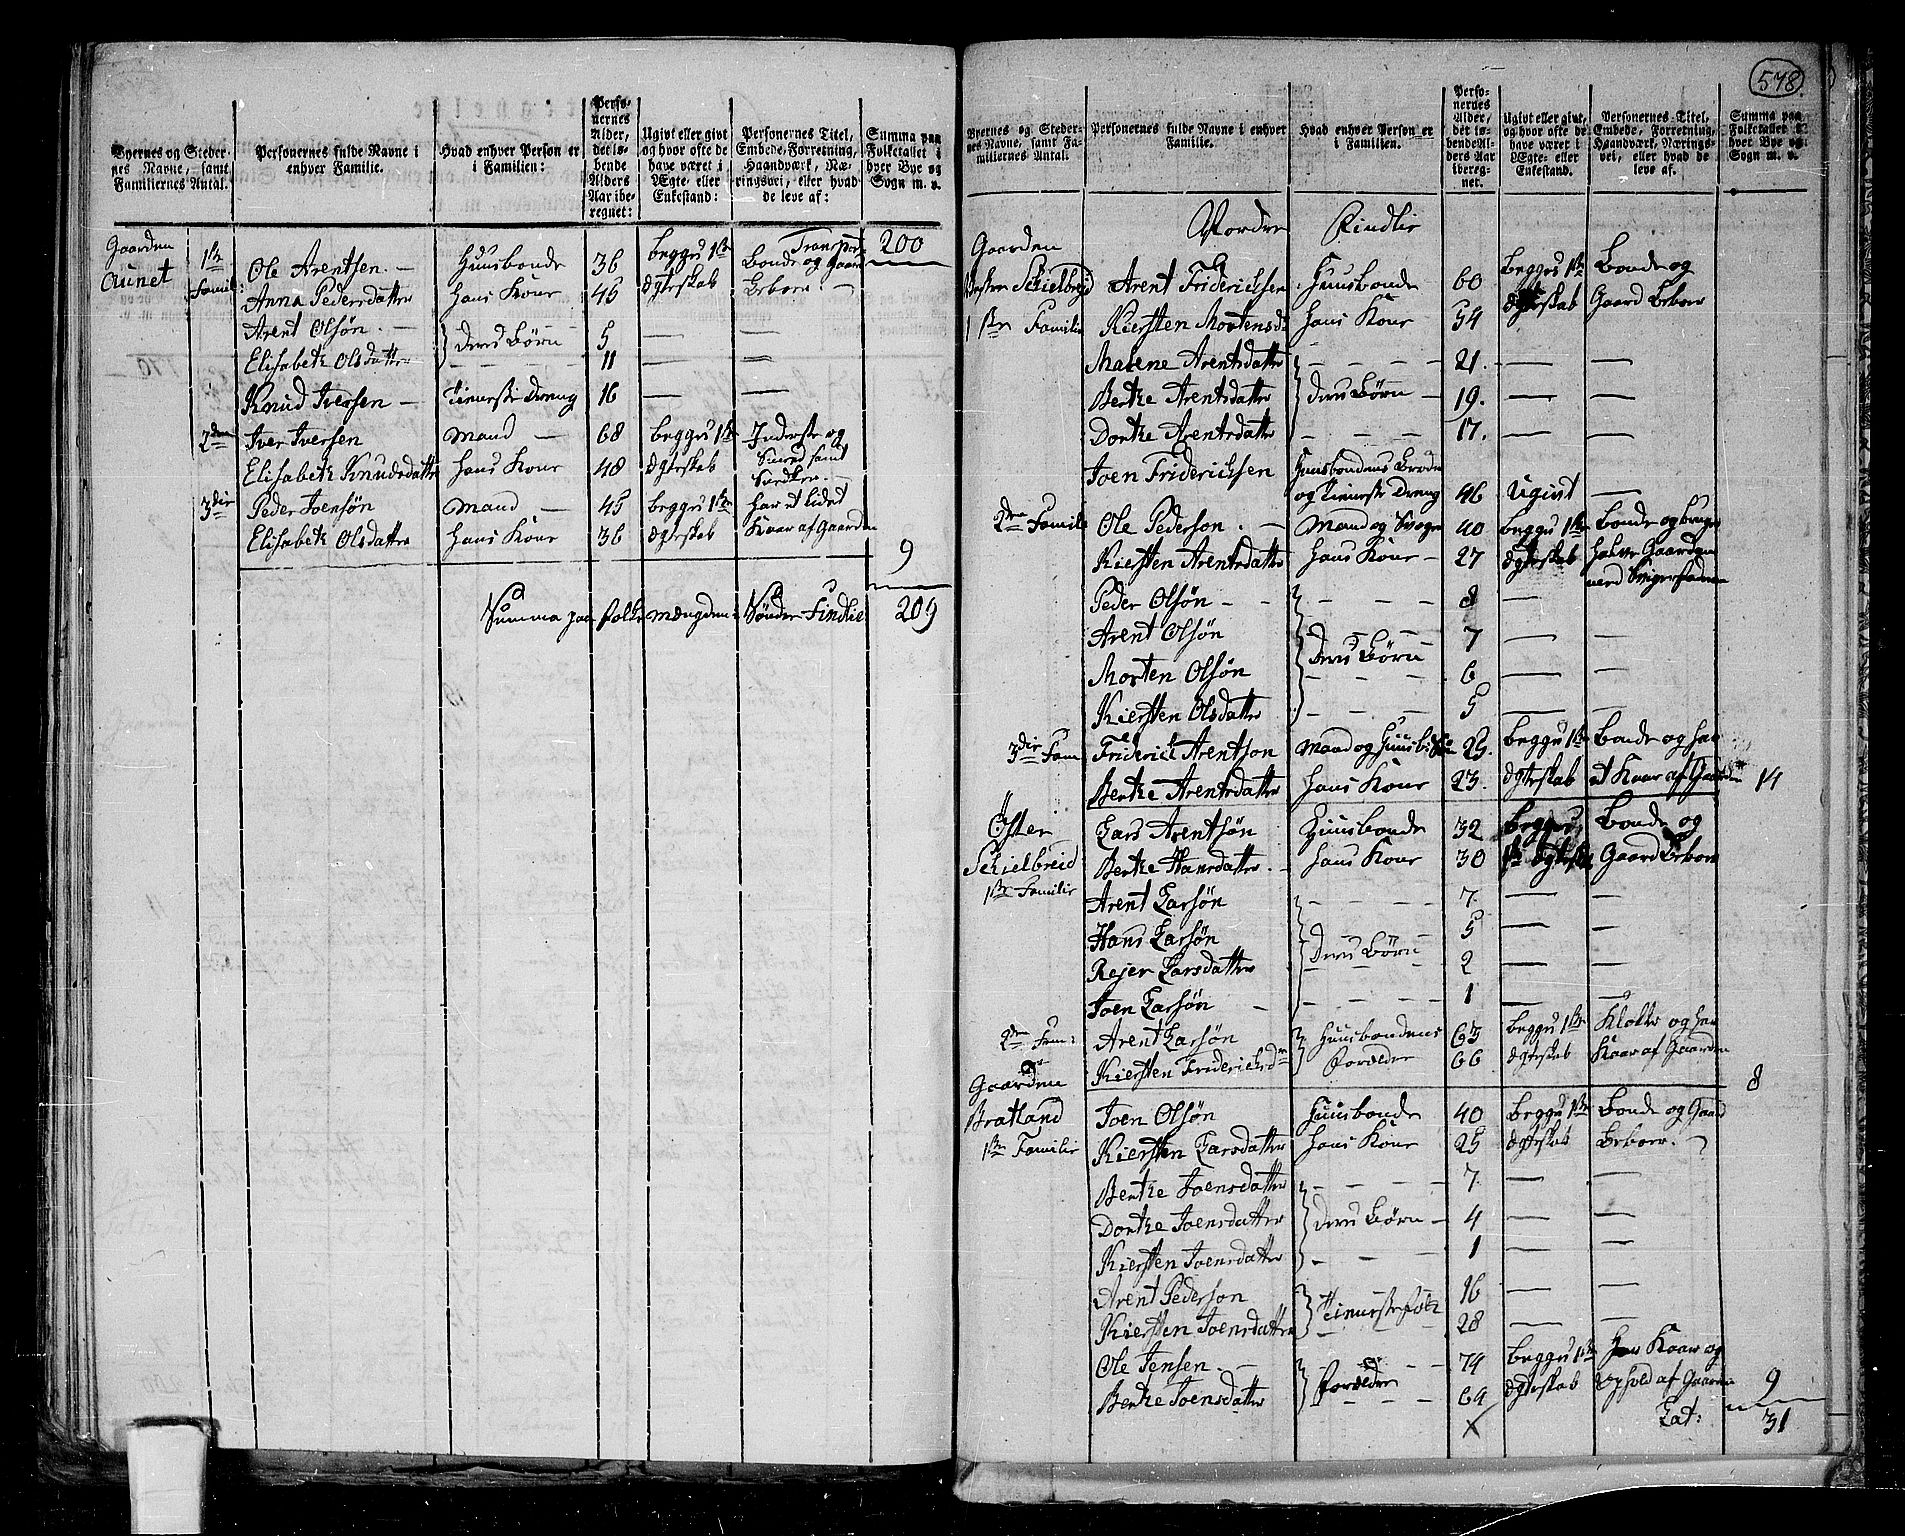 Byernes og Steder- nes Navne, samt Familiernes Antal.
Personernes fulde Navne i enhver Familie.
Hvad enhver Person er i Familien:
Perso- nernes Alder, det lø- bende Alders Aar ibe- regnet:
Ugivt eller givt og hvor ofte de have været i Ægte- eller Enkestand:
Personernes Titel, Embede, Forretning, Haandværk, Næ- ringsvei, eller hvad de leve af:
Summa paa Folketallet i hver Bye og Sogn m. v.
Transport 200
Gaarden Aunet 1ste Famil: Ole Arentsen Huusbonde 36 begge 1ste Bonde og Gaard
Anna Pedersdatter hans Kone 46 Ægteskab Beboer
Arent Olsøn } deres Børn 5 — —
Elisabeth Olsdatter 11 — —
Knud Iversen Tieneste Dreng 16 — —
2den Iver Iversen Mand 68 begge 1ste Inderste og
Elisabeth Knudsdatter hans Kone 48 Ægteskab
3die Peder Joensøn Mand 45 begge 1ste har et lidet
Elisabeth Olsdatter hans Kone 36 Ægteskab Kaar af Gaarden
9
Summa paa folke mængden: Sønder Findlie 209
578.
Byernes og Steder- nes Navne, samt Fa- miliernes Antal.
Personernes fulde Navne i enhver Familie.
Hvad enhver Person er i Familien.
Perso- nernes Alder, det lø- bende Al- ders Aar iberegnet.
Ugivt eller givt, og hvor ofte de have været i Ægte- eller Enkestand.
Personernes Titel, Embede, Forretning, Haandværk, Nærings- vei, eller hvad de leve af.
Summa paa Folketallet i hver Bye og Sogn m. v.
Nordre Findlie
Gaarden
Vestre Schielbreid Arent Friderichsen Huusbonde 60 begge 1ste Bonde og
1ste Familie Kiersten Mortensd: hans Kone 54 Ægteskab Gaard Beboer
Malene Arentsdatter 21. — —
Berthe Arentsdatter } deres Børn 19. — —
Dorthe Arentsdatter 17. — —
Joen Friderichsen Huusbondens Broder
og Tieneste Dreng 46 Ugivt —
2den Famil: Ole Pederson Mand og Svoger 40 begge 1ste Bonde og bruger
Kiersten Arentsdatter hans Kone 27 Ægteskab halve Gaarden
med Svigerfaderen
Peder Olsøn 8
Arent Olsøn 7 — —
Morten Olsøn } deres Børn 6 — —
Kiersten Olsdatter 5 — —
3die Fam Friderich Arentson Mand og Huusb: Søn 25. begge 1ste Bonde og har
Berthe Arentsdatter hans Kone 23. Ægteskab et Kaar af Gaarden 14
Öster Lars Arentsön Huusbonde 32 begge Bonde og
Schielbreid Berthe Hansdatter hans Kone 30 1ste Ægtesk: Gaard Beboer
1ste Familie Arent Larsön 7. — —
Hans Larsön 5 — —
Rejer Larsdatter } deres Børn 2 — —
Joen Larsön 1 — —
2den Fam: Arent Larsön } Huusbondens 63 begge 1ste Klokker og har
Kiersten Friderichsd: Forældre 66 Ægteskab Kaar af Gaarden
8
Gaarden
Bratland Joen Olsön Huusbonde 40 begge 1ste Bonde og Gaard
1ste Familie Kiersten Larsdatter hans Kone 25 Ægteskab Beboer.
Berthe Joensdatter 7. — —
Dorthe Joensdatter } deres Børn 4 — —
Kiersten Joensdatter 1 — —
Arent Pederson 16 —
Kiersten Joensdatter } Tieneste folk 28 — —
Ole Jensen 74 begge 1ste Har Kaar og
Berthe Joensdatter } Forældre 64 Ægteskab Ophold af Gaarden 9
Lat: 31